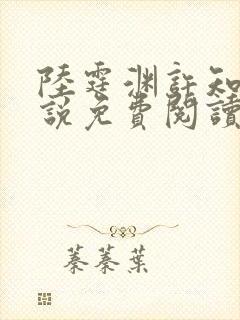 陸霆渊許知
說免費閱讀
蓁蓁葉